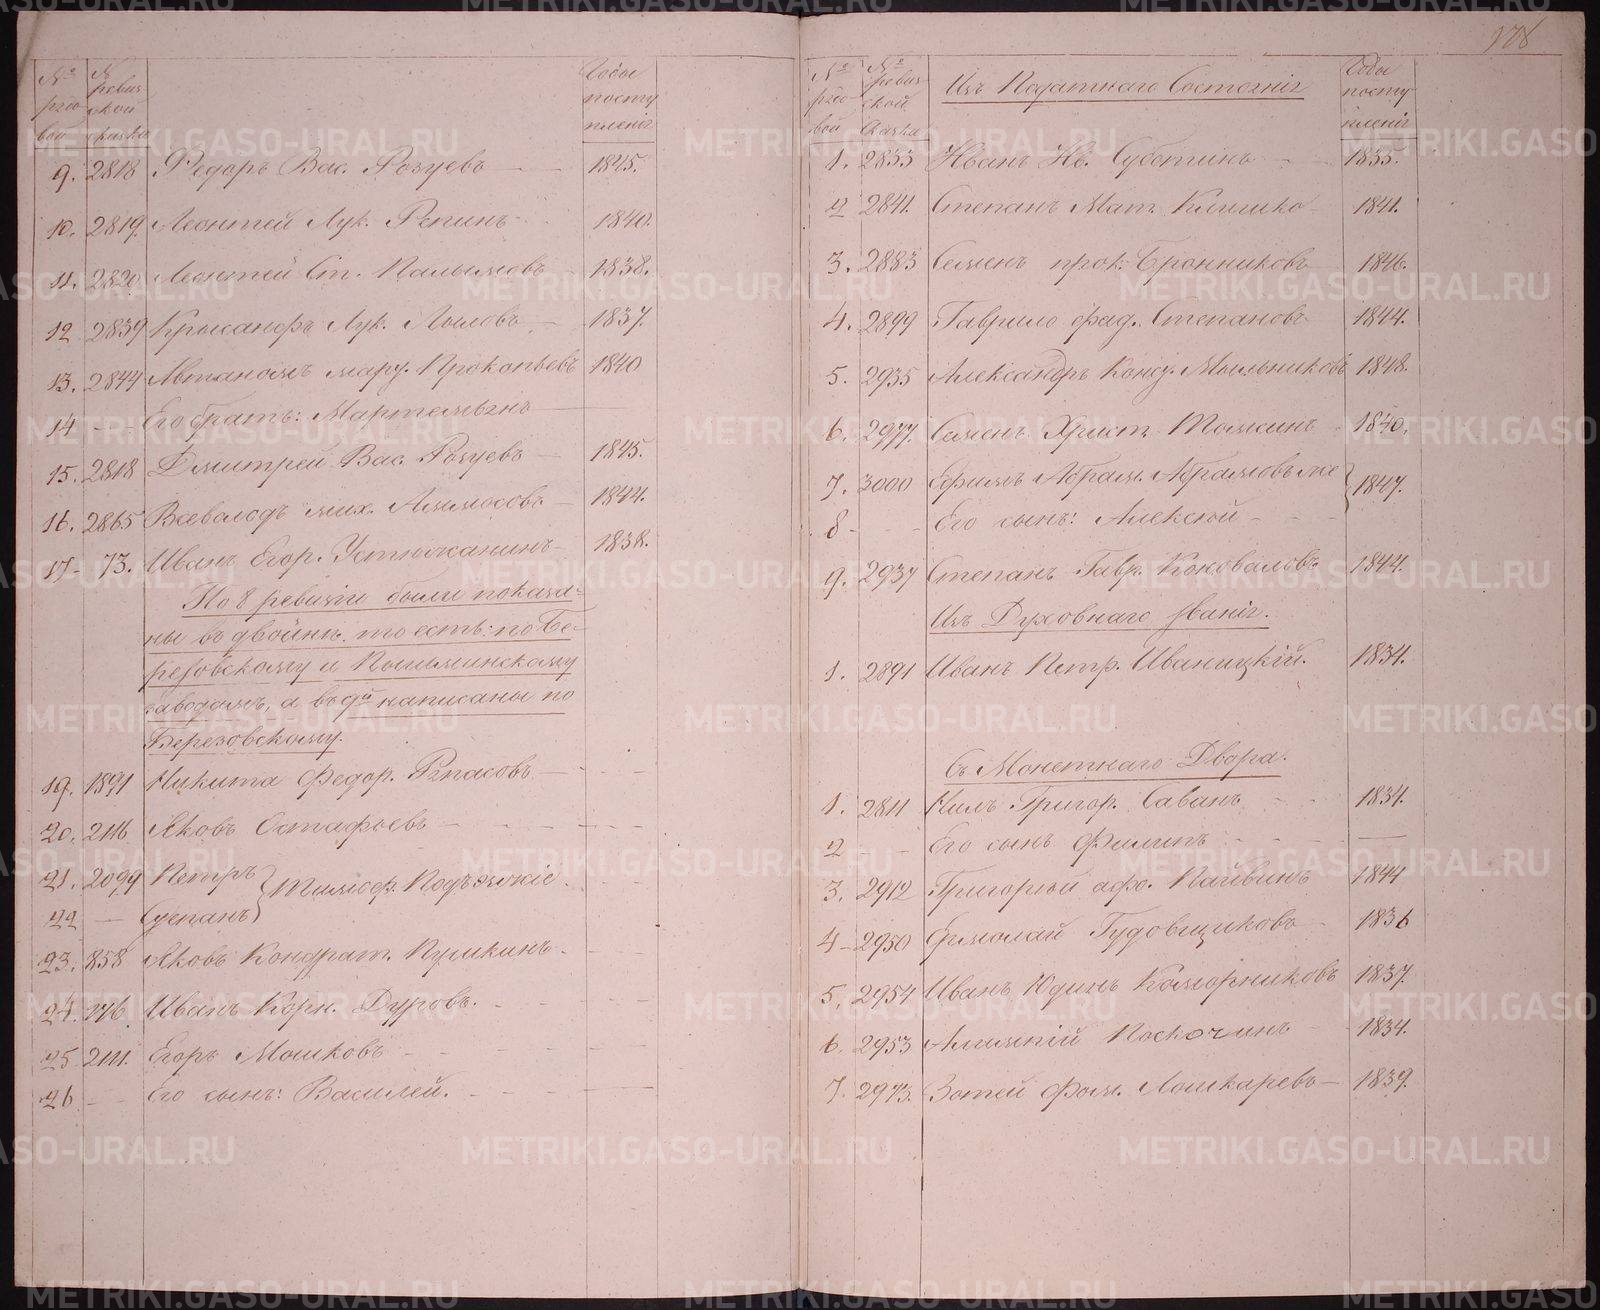 178
№ рядовой
№ ревизской сказки
Годы поступленія
9. 2818 Ѳедоръ Вас. Розуевъ 1845.
10. 2819. Леонтей Лук. Репинъ 1840.
11. 2820 Леонтей Ст. 1838.
12 2839 Крысанфъ Лук. 1837.
13. 2844 Автаномъ Марк. Прокопьевъ 1840
14 — Его братъ: Мартемьянъ —
15. 2818 Дмитрей Вас. Розуевъ 1845.
16. 2865 Всеволодъ мих. 1844.
17- 73. Иванъ Егор. Устюжанинъ 1838.
По 8 ревизіи были показа-
ны въ двойнѣ, то есть: по Бе-
резовскому и Пышминскому
заводамъ, а въ 9й написаны по
Березовскому.
19. 1891 Никита Федор. Рѣпасовъ
20. 2116 Яковъ Остафьевъ
21. 2099 Петръ
22 — Степанъ } Тимоф. Подъячкіе.
23. 858 Яковъ Кондрат. Пушкинъ
24. 176. Иванъ Корн. Дуровъ.
25 2111. Егоръ Машковъ
26 — Его сынъ: Василей.
№ рядовой
№ ревизской сказки
Изъ Податнаго Состоянія
Годы поступленія
1. 2833 Иванъ Ив. Субботинъ 1835.
2 2841. Степанъ Мат. Климко 1841.
3. 2883 Семенъ прок. Бронниковъ 1846.
4. 2899 Гаврило фад. Степановъ 1844.
5. 2935 Александръ Конст. Мыльниковъ 1848.
6. 2977. Семенъ Христ. Томкинъ 1840.
7. 3000 Ефимъ Абрам. Абрамовъ
8 - Его сынъ: Алексѣй } 1847.
9. 2937 Степанъ Гавр. Коноваловъ 1844.
Изъ Духовнаго званія.
1. 2891 Иванъ Петр. Иваницкій. 1834.
Съ Монетнаго Двора.
1. 2811 Нилъ Григор. Саванъ 1834.
2 — Его сынъ Филипъ —
3. 2912 Григорей афо. Пайвинъ 1844
4- 2950 Ермолай Гудовщиковъ 1836
5. 2954 Иванъ Юдинъ Каморниковъ 1837.
6. 2953 Поскочинъ 1834.
7. 2973. Зотей Фом. Лошкаревъ 1839.
METRIKI.GASO-URAL.RU